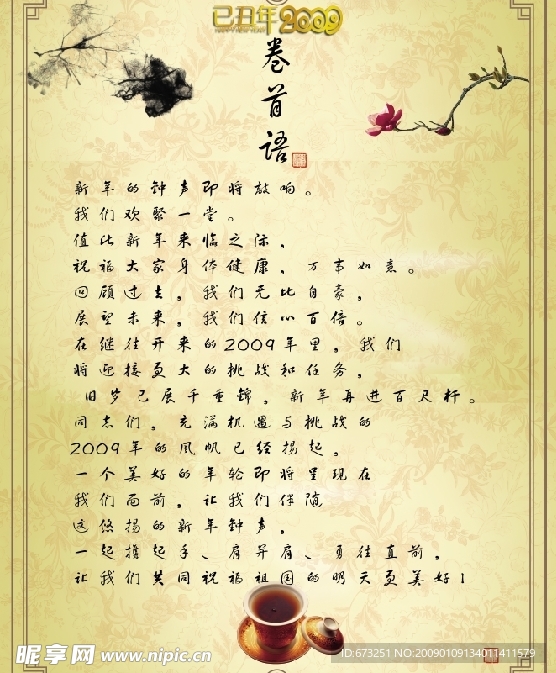 己丑年2009
卷首语
新年的钟声即将敲响。
我们欢聚一堂。
值此新年来临之际，
祝福大家身体健康，万事如意。
回顾过去，我们无比自豪，
展望未来，我们信心百倍。
在继往开来的2009年里，我们
将迎接更大的挑战和任务，
旧岁已展千重锦，新年再进百尺杆。
同志们，充满机遇与挑战的
2009年的风帆已经扬起。
一个美好的年轮即将呈现在
我们面前，让我们伴随
这悠扬的新年钟声，
一起携起手、肩并肩、勇往直前，
让我们共同祝福祖国的明天更美好！
昵享网 www.nipic.cn
ID:673251 NO:20090109134011411579